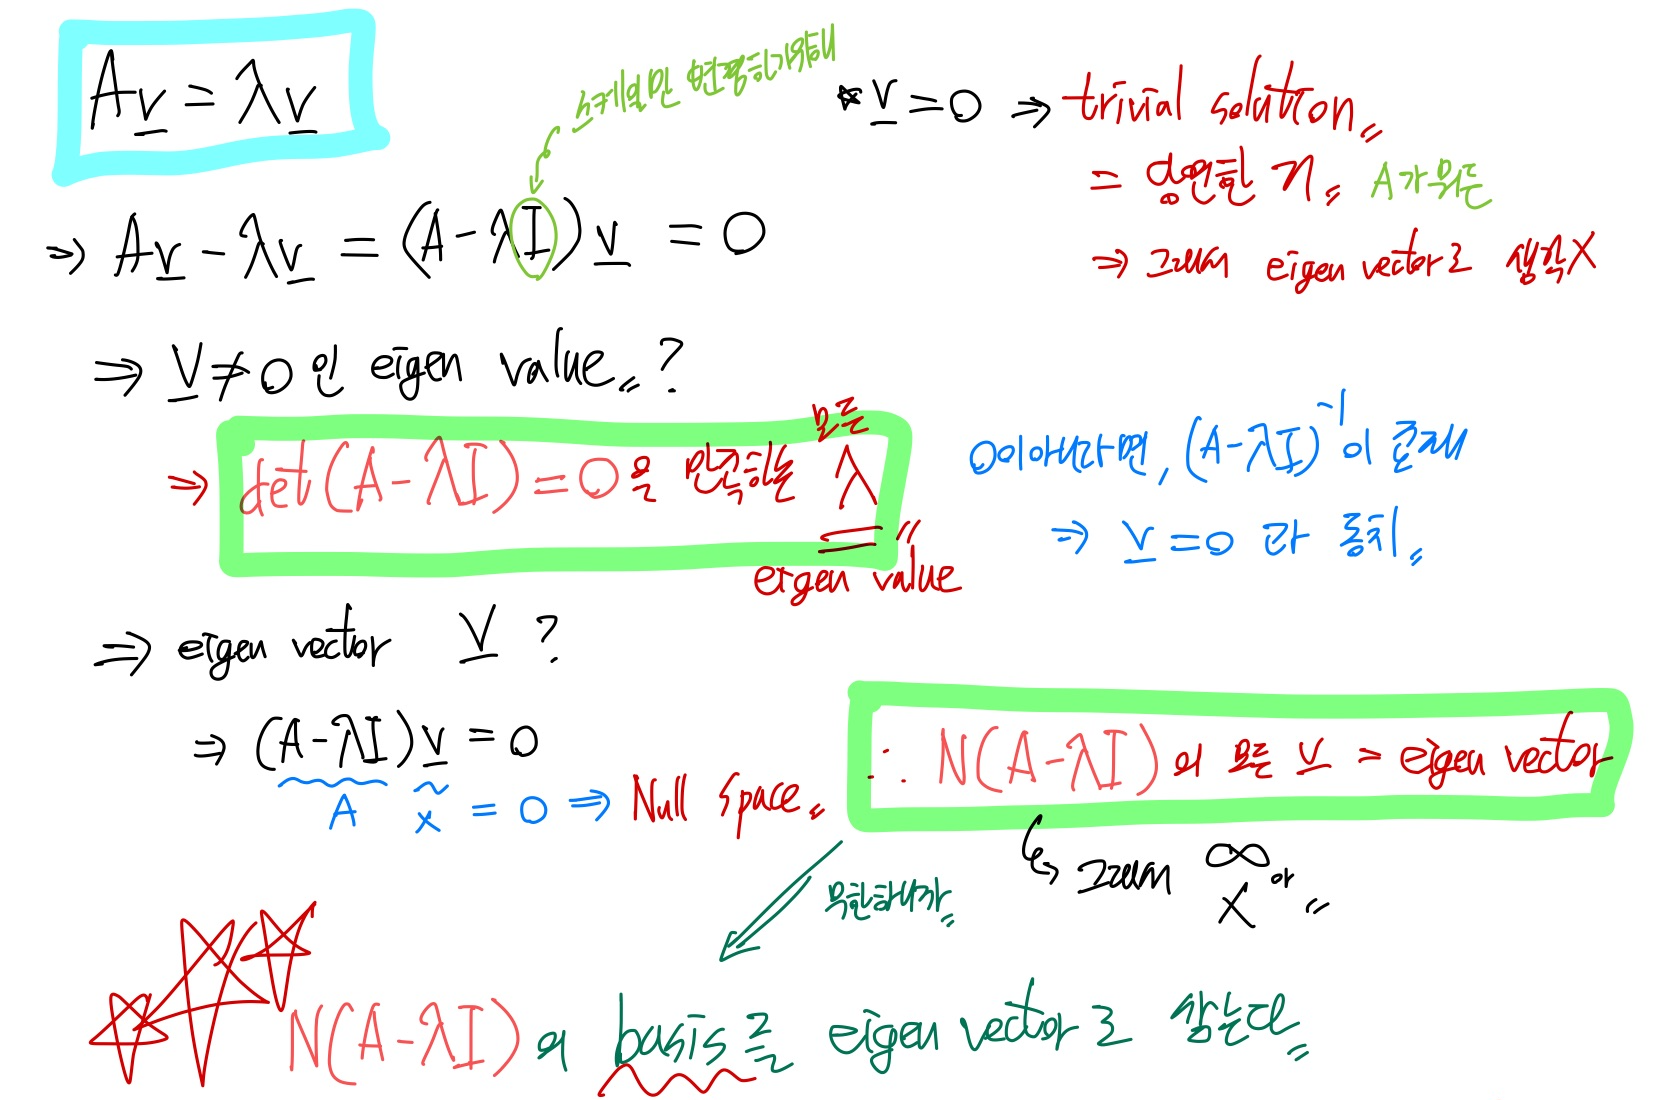 Av = λv
스케일만 변형하기위해
* v = 0 ⇒ trivial solution〃
= 당연한 거〃 A가 뭐든
⇒ 그래서 eigen vector로 생각X
⇒ Av - λv = (A - λI)v = 0
⇒ v ≠ 0 인 eigen value〃?
모든
⇒ det(A - λI) = 0 을 만족하는 λ〃
eigen value
0이아니라면, (A-λI)⁻¹이 존재
⇒ v = 0 과 동치〃
⇒ eigen vector v ?
⇒ (A-λI)v = 0
A x = 0 ⇒ Null space〃
∴ N(A-λI)의 모든 v = eigen vector
그래서 ∞ or X〃
무한하니까〃
N(A-λI)의 basis를 eigen vector로 삼는다〃